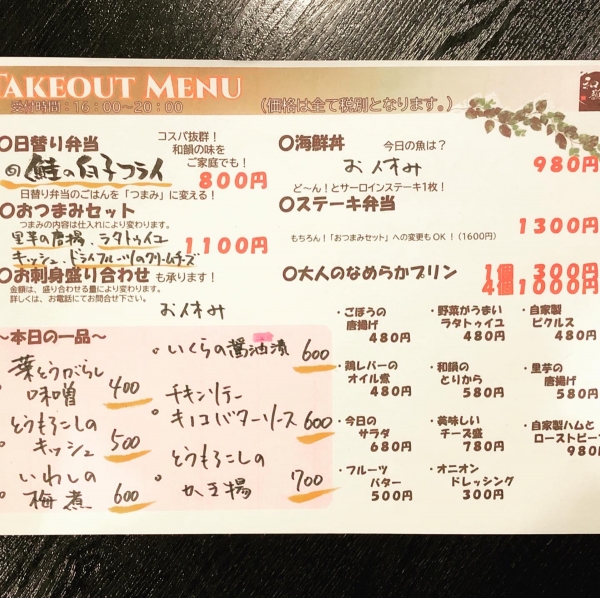 TAKEOUT MENU
受付時間：16:00〜20:00
（価格は全て税別となります。）
〇日替り弁当
コスパ抜群！
和韻の味を
ご家庭でも！
鮭の白子フライ
800円
日替り弁当のごはんを「つまみ」に変える！
〇おつまみセット
つまみの内容は仕入れにより変わります。
里芋の唐揚．ラタトゥイユ
キッシュ．ドライフルーツのクリームチーズ
1100円
〇お刺身盛り合わせ も承ります！
金額は、盛り合わせる量により変わります。
詳しくは、お電話にてお問合せ下さい。
お休み
〇海鮮丼
今日の魚は？
お休み
980円
ど〜ん！とサーロインステーキ1枚！
〇ステーキ弁当
1300円
もちろん！「おつまみセット」への変更もOK！（1600円）
〇大人のなめらかプリン
1個 300円
4個1000円
〜本日の一品〜
葉とうがらし
味噌 400
とうもろこしの
キッシュ 500
いわしの
梅煮 600
・いくらの醤油漬 600
チキンソテー
キノコバターソース 600
とうもろこしの
かき揚 700
・ごぼうの
唐揚げ
480円
・野菜がうまい
ラタトゥイユ
480円
・自家製
ピクルス
480円
・鶏レバーの
オイル煮
480円
・和韻の
とりから
580円
・里芋の
唐揚げ
580円
・今日の
サラダ
680円
・美味しい
チーズ盛
780円
・自家製ハムと
ローストビーフ
980円
・フルーツ
バター
500円
・オニオン
ドレッシング
300円